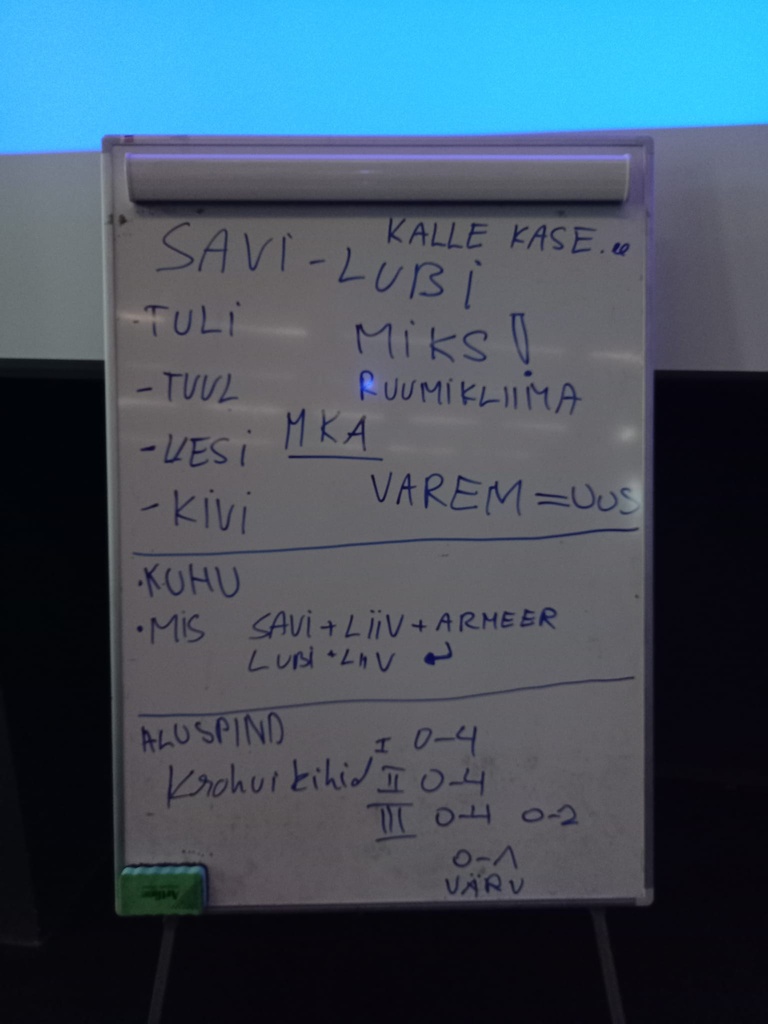 KALLE KASE...
SAVI - LUBI
· TULI
MIKS!
- TUUL
RUUMIKLIIMA
MKA
- VESI
VAREM = UUS
- KIVI
· KUHU
· MIS SAVI + LIIV + ARMEER
LUBI + LIIV ↵
ALUSPIND
I 0-4
Krohvikihid II 0-4
III 0-4 0-2
0-1
VÄRV